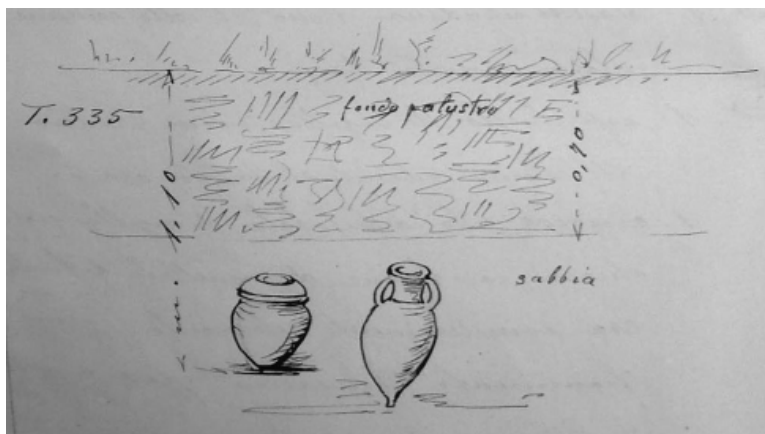 T. 335
fondo palustre
0,70
m. 1.10
sabbia